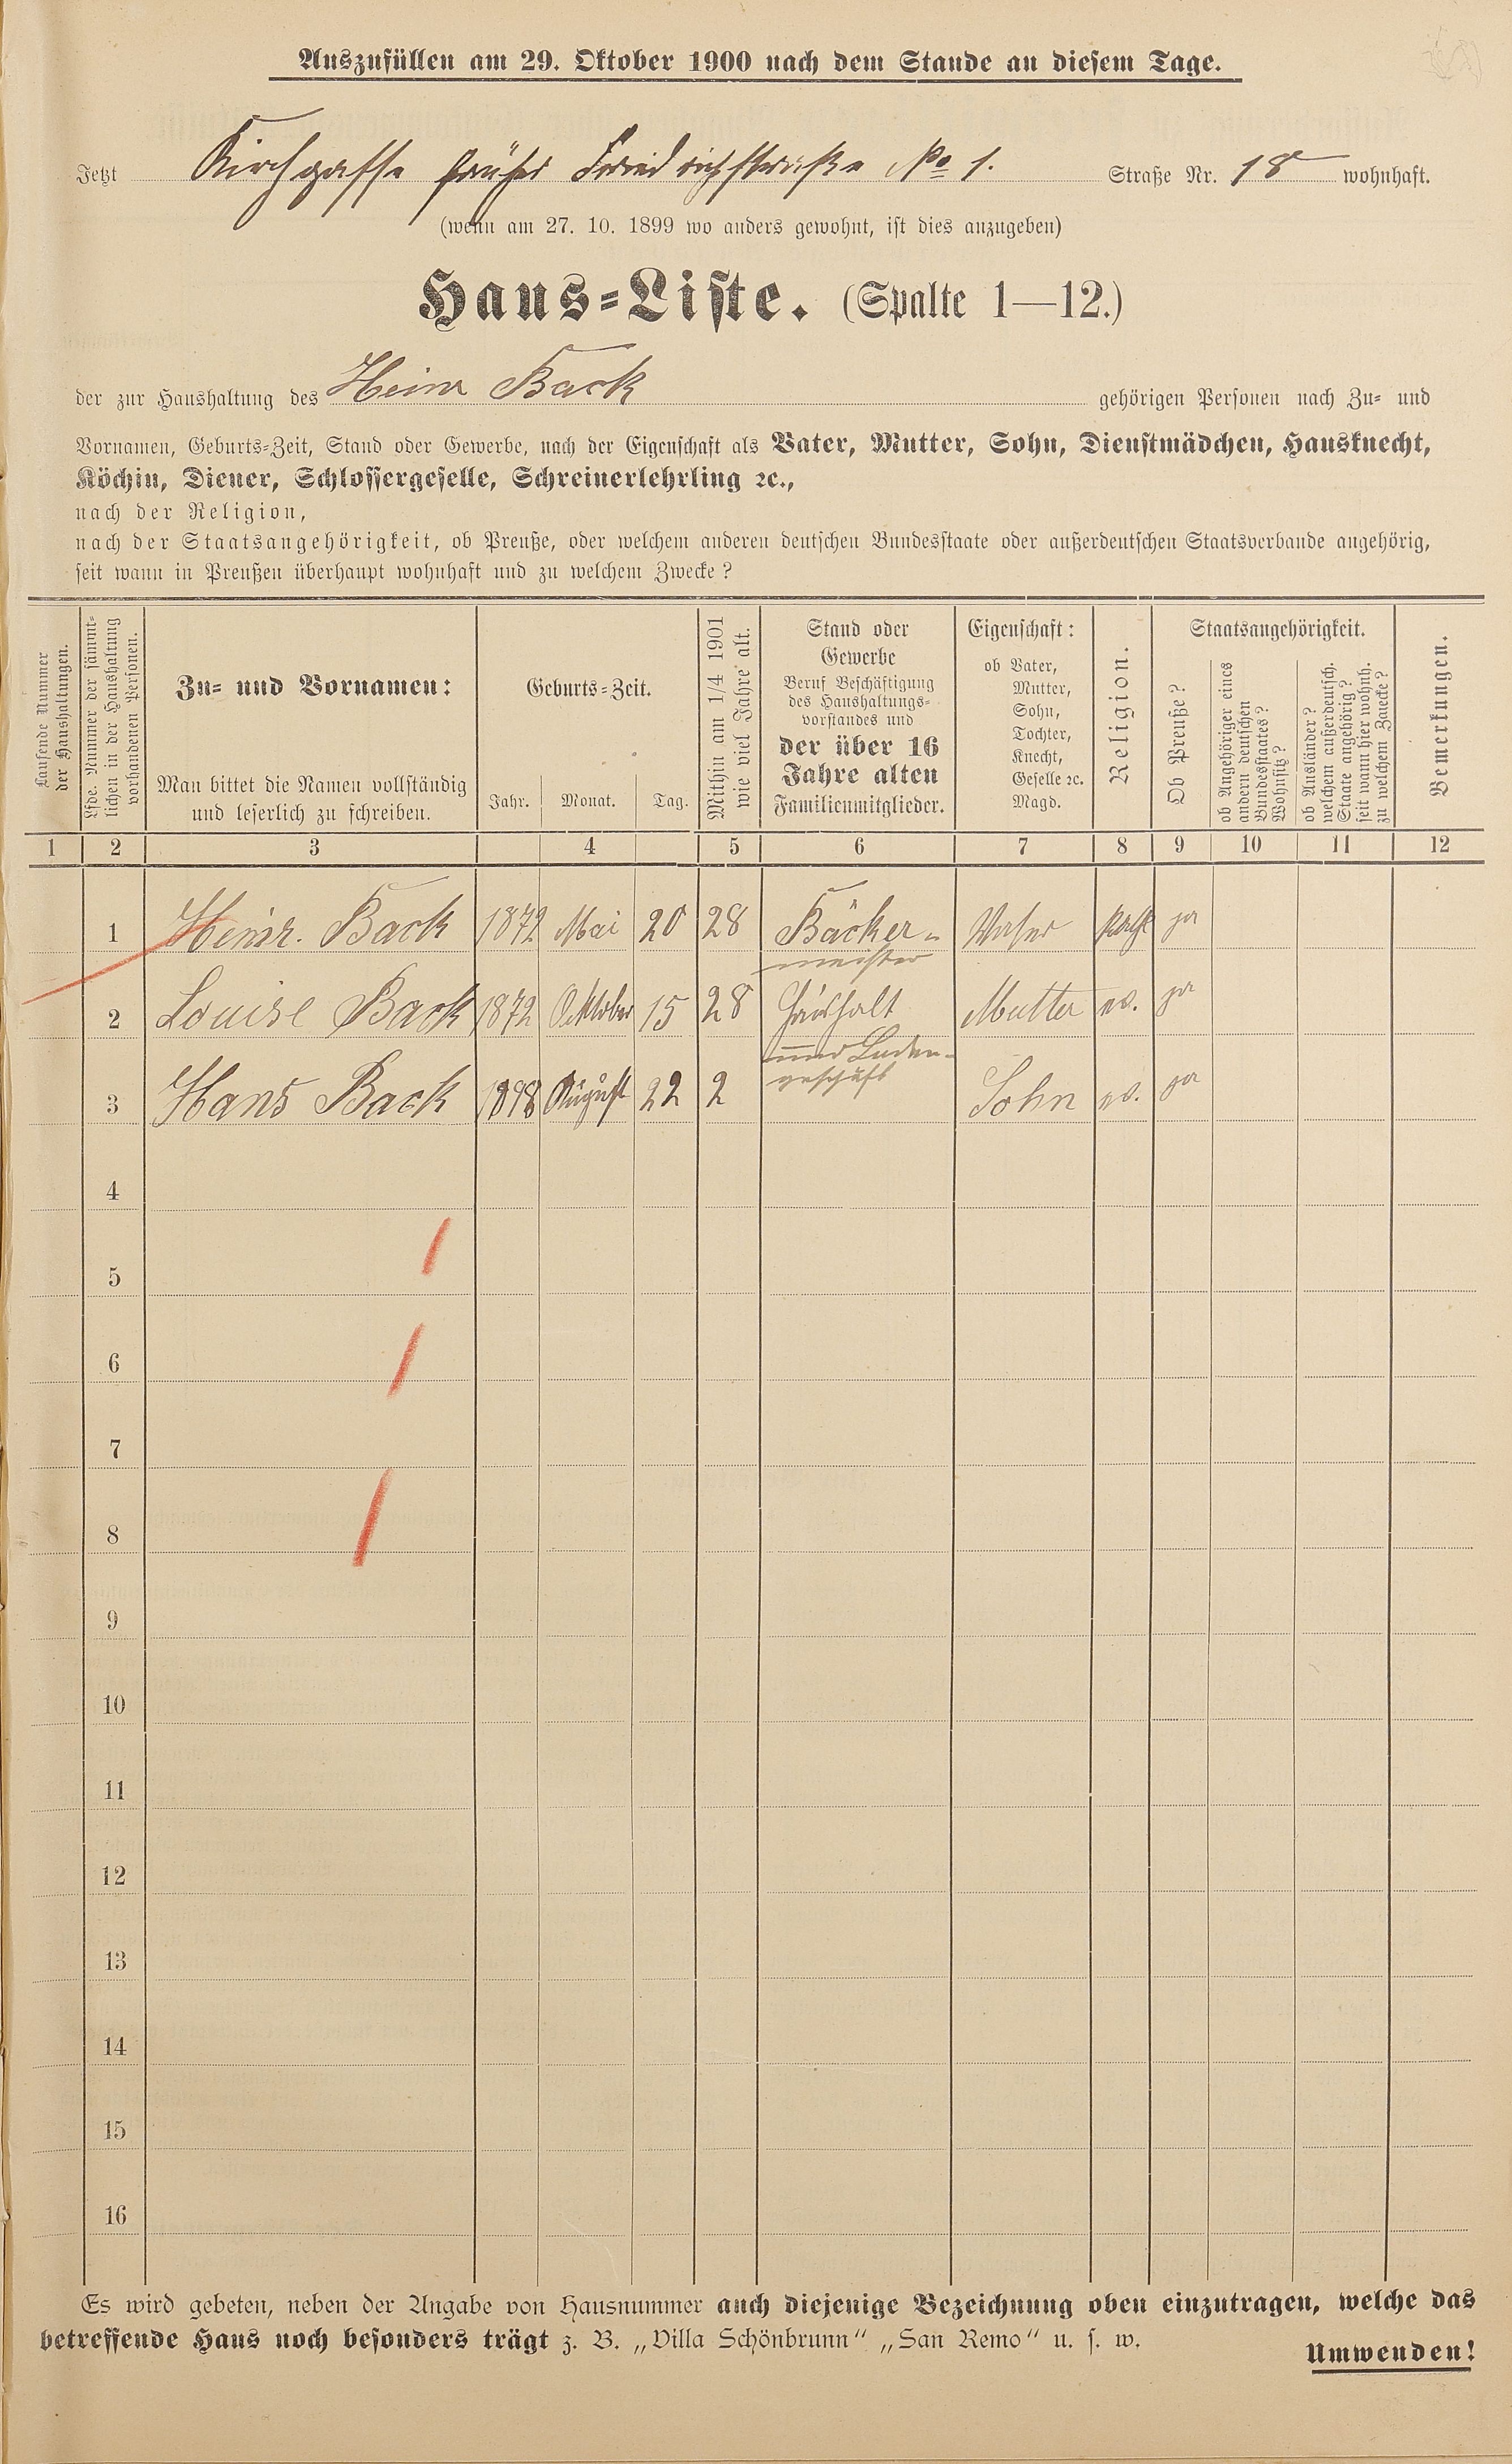 Auszufüllen am 29. Oktober 1900 nach dem Stande an diesem Tage.
Jetzt Kirchgasse früher Friedrichstraße No 1. Straße Nr. 18 wohnhaft.
(wenn am 27. 10. 1899 wo anders gewohnt, ist dies anzugeben)
Haus-Liste. (Spalte 1—12.)
der zur Haushaltung des Heinr Back gehörigen Personen nach Zu- und
Vornamen, Geburts-Zeit, Stand oder Gewerbe, nach der Eigenschaft als Vater, Mutter, Sohn, Dienstmädchen, Hausknecht,
Köchin, Diener, Schlossergeselle, Schreinerlehrling ꝛc.,
nach der Religion,
nach der Staatsangehörigkeit, ob Preuße, oder welchem anderen deutschen Bundesstaate oder außerdeutschen Staatsverbande angehörig,
seit wann in Preußen überhaupt wohnhaft und zu welchem Zwecke?
Laufende Nummer
der Haushaltungen.
Lfde. Nummer der sämmt-
lichen in der Haushaltung
vorhandenen Personen.
Zu- und Vornamen:
Man bittet die Namen vollständig
und leserlich zu schreiben.
Geburts-Zeit.
Jahr. Monat. Tag.
Mithin am 1/4 1901
wie viel Jahre alt.
Stand oder
Gewerbe
Beruf Beschäftigung
des Haushaltungs-
vorstandes und
der über 16
Jahre alten
Familienmitglieder.
Eigenschaft:
ob Vater,
Mutter,
Sohn,
Tochter,
Knecht,
Geselle ꝛc.
Magd.
Religion.
Staatsangehörigkeit.
Ob Preuße?
ob Angehöriger eines
andern deutschen
Bundesstaates?
Wohnsitz?
ob Ausländer?
welchem außerdeutsch.
Staate angehörig?
seit wann hier wohnh.
zu welchem Zwecke?
Bemerkungen.
1 2 3 4 5 6 7 8 9 10 11 12
1 Heinr. Back 1872 Mai 20 28 Bäcker- Vater ja
meister
2 Louise Back 1872 Oktober 15 28 Haushalt Mutter ev. ja
und Laden-
geschäft
3 Hans Back 1898 August 22 2 Sohn ev. ja
4
5
6
7
8
9
10
11
12
13
14
15
16
Es wird gebeten, neben der Angabe von Hausnummer auch diejenige Bezeichnung oben einzutragen, welche das
betreffende Haus noch besonders trägt z. B. „Villa Schönbrunn“ „San Remo“ u. s. w.
Umwenden!